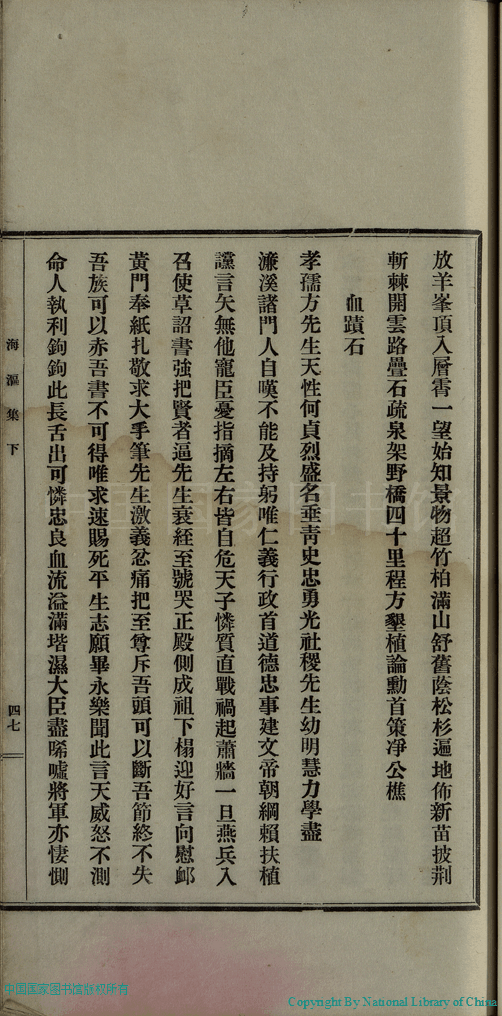 放羊峯頂入層霄一望始知景物超竹柏滿山舒舊蔭松杉遍地佈新苗披荆
斬棘開雲路疊石疏泉架野橋四十里程方墾植論勳首策凈公樵
血蹟石
孝孺方先生天性何貞烈盛名垂靑史忠勇光社稷先生幼明慧力學盡
濂溪諸門人自嘆不能及持躬唯仁義行政首道德忠事建文帝朝綱賴扶植
讜言矢無他寵臣憂指摘左右皆自危天子憐質直戰禍起蕭牆一旦燕兵入
召使草詔書強把賢者逼先生衰絰至號哭正殿側成祖下榻迎好言向慰卹
黃門奉紙扎敬求大手筆先生激義忿痛把至尊斥吾頭可以斷吾節終不失
吾族可以赤吾書不可得唯求速賜死平生志願畢永樂聞此言天威怒不測
命人執利鉤鉤此長舌出可憐忠良血流溢滿堦濕大臣盡唏噓將軍亦悽惻
海漚集下
四七
中国国家图书馆
中国国家图书馆版权所有
Copyright By National Library of China